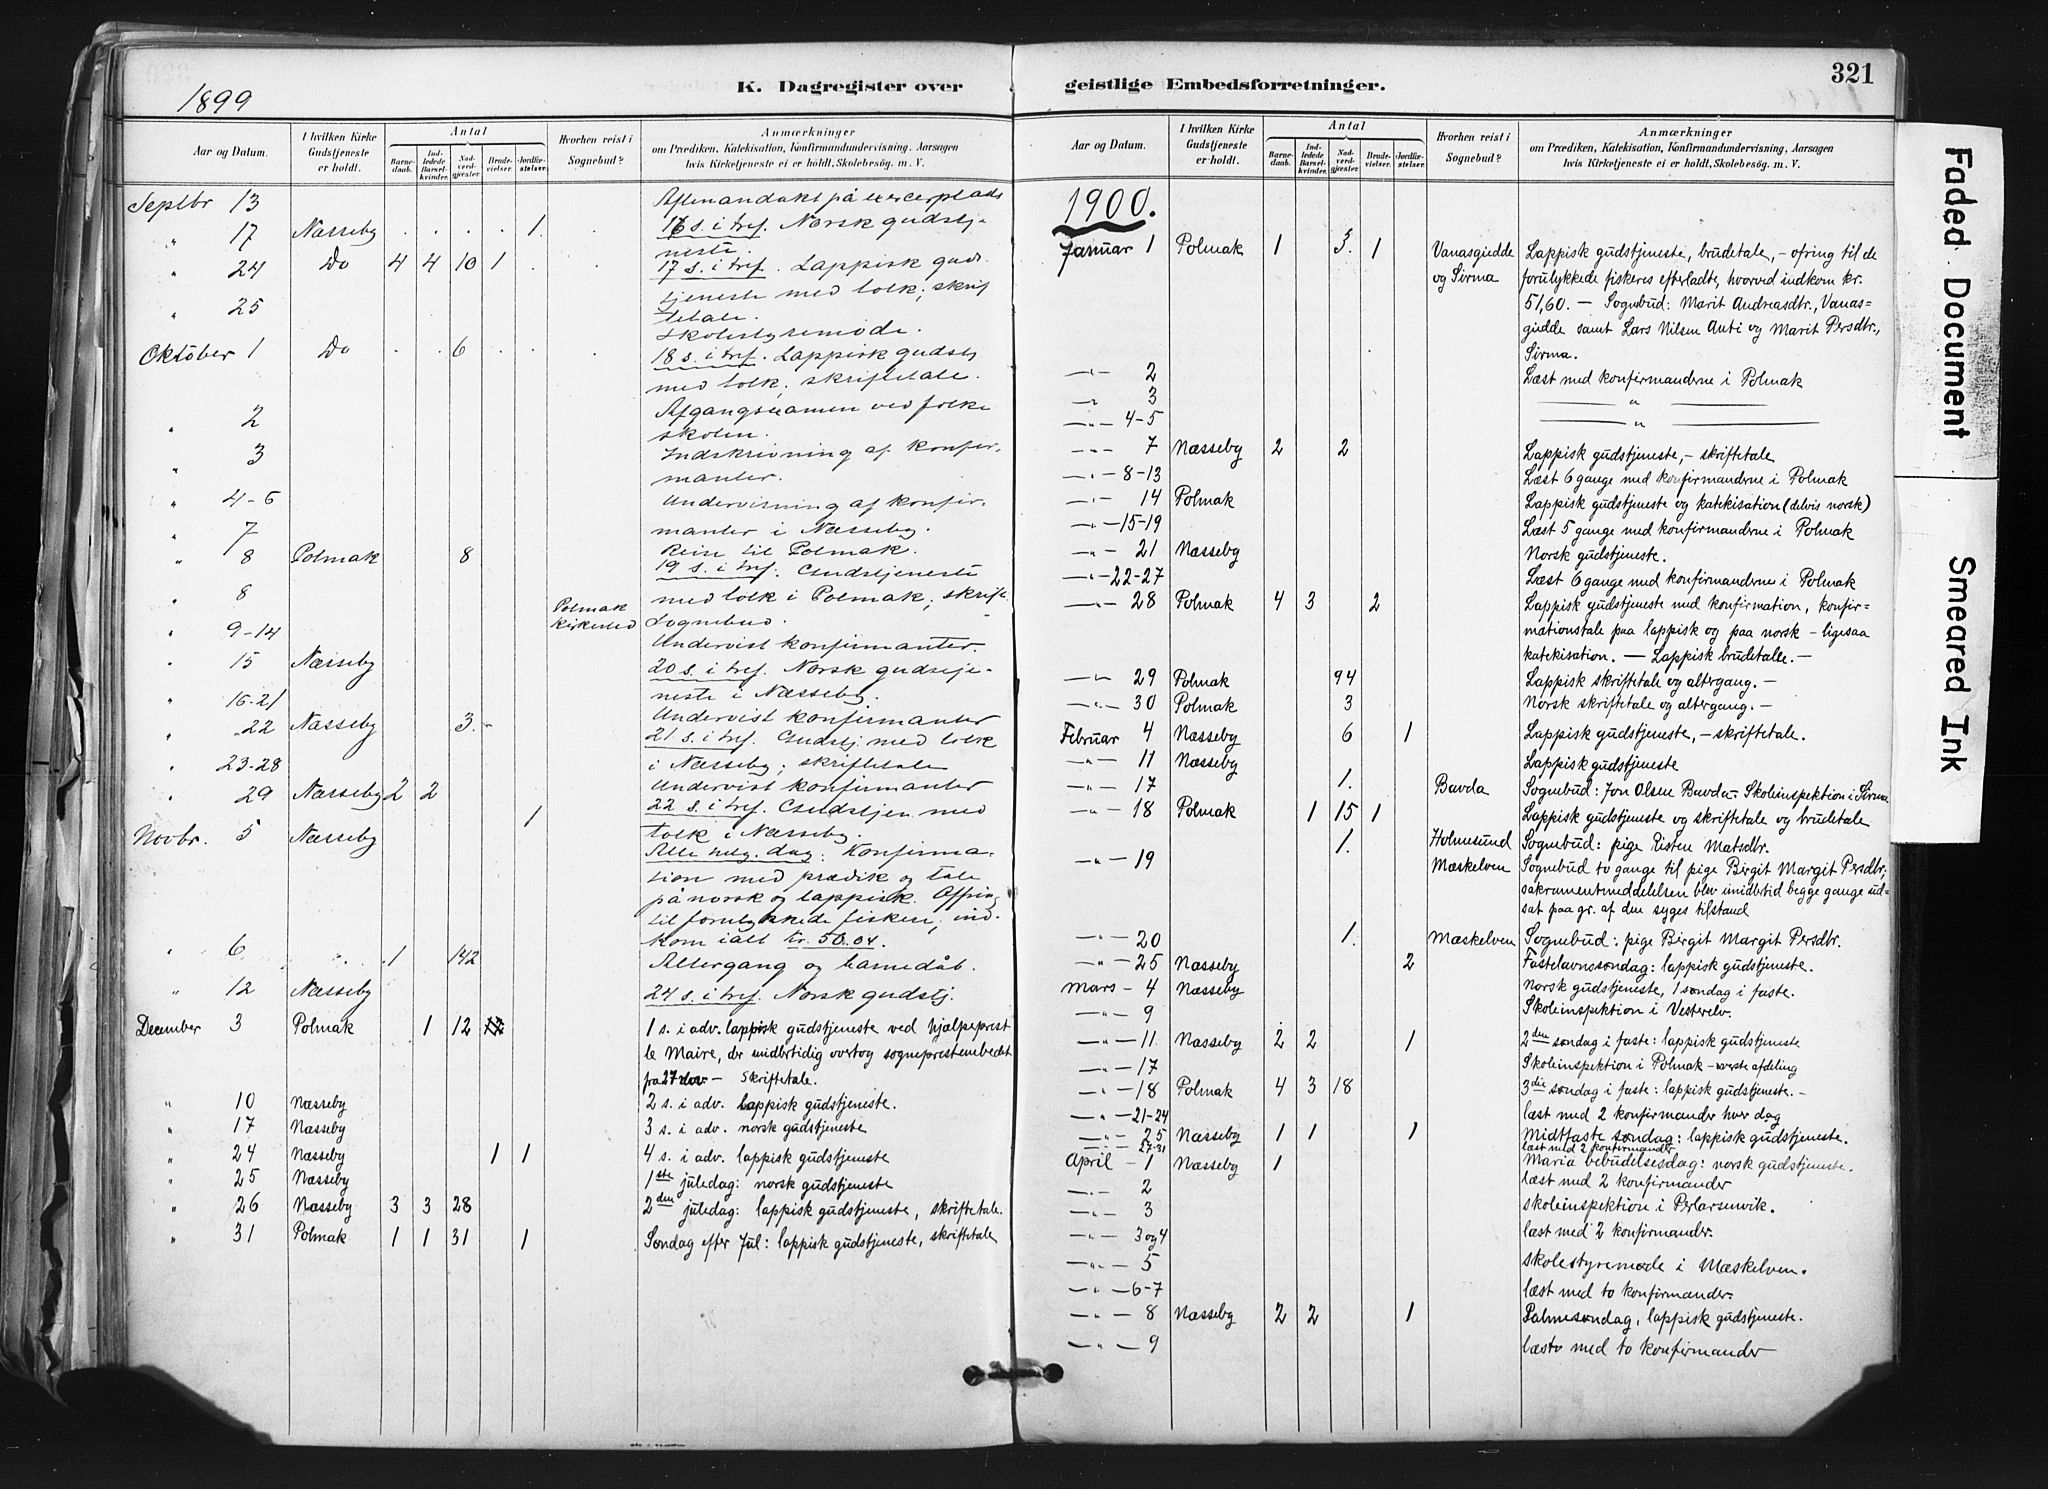 1899
K. Dagregister over
Aar og Datum.
I hvilken Kirke Gudstjeneste er holdt.
Antal
Barnedaab.
Indledede Barselkvinder.
Nadverdgjester.
Brudevielser.
Jordfæstelser.
Hvorhen reist i Sognebud?
Anmærkninger
om Prædiken, Katekisation, Konfirmandundervisning, Aarsagen
hvis Kirketjeneste ei er holdt, Skolebesøg. m. V.
Septbr 13 Aftenandakt på excerplads
" 17 Næsseby . . . . 1. 16 s. i tref. Norsk gudstje-
neste.
" 24 Do 4 4 10 1 . . 17 s. i tref. Lappisk guds-
tjeneste med tolk; skrif
tetale.
" 25 Skolestyremöde.
Oktober 1 Do . . 6 . . . 18 s. i tref. Lappisk gudstj
med tolk; skriftetale.
" 2 Afgangsexamen ved folke
skolen.
" 3 Indskrivning af konfir-
manter.
" 4-6 Undervisning af konfir-
manter i Næsseby.
" 7 Reise til Polmak.
" 8 Polmak 8 19 s. i tref. Gudstjeneste
med tolk i Polmak; skrift.
" 8 Polmak kirkested Sognebud.
" 9-14 Undervist konfirmanter.
" 15 Næsseby 20 s. i tref. Norsk gudstje-
neste i Næsseby.
" 16-21 Undervist konfirmanter
" 22 Næsseby 3. - 21 s. i tref. Gudstj. med tolk
i Næsseby; skriftetale
" 23-28 Undervist konfirmanter
" 29 Næsseby 2 2 22 s. i tref. Gudstjen. med
tolk i Næsseby.
Novbr. 5 Næsseby 1 Alle helg. dag: Konfirma-
tion med prædik og tale
på norsk og lappisk. Offring
til forulykkede fiskere; ind-
kom ialt kr. 50.04.
" 6 . . 1 142 Altergang og barnedåb.
" 12 Næsseby 24 s. i tref. Norsk gudstj.
December 3 Polmak 1 12 1 s. i adv. lappisk gudstjeneste ved hjælpeprest
le Maire, der midlertidig overtog sogneprestembedet
fra 27 nov. - Skriftetale.
" 10 Næsseby 2 s. i adv. lappisk gudstjeneste.
" 17 Næsseby 3 s. i adv. norsk gudstjeneste
" 24 Næsseby 1 1 4 s. i adv. lappisk gudstjeneste
" 25 Næsseby 1ste juledag: norsk gudstjeneste
" 26 Næsseby 3 3 28 2den juledag: lappisk gudstjeneste, skriftetale.
" 31 Polmak 1 1 31 1 Søndag efter Jul: lappisk gudstjeneste, skriftetale
geistlige Embedsforretninger.
321
Aar og Datum.
I hvilken Kirke Gudstjeneste er holdt.
Antal
Barnedaab.
Indledede Barselkvinder.
Nadverdgjester.
Brudevielser.
Jordfæstelser.
Hvorhen reist i Sognebud?
Anmærkninger
om Prædiken, Katekisation, Konfirmandundervisning, Aarsagen
hvis Kirketjeneste ei er holdt, Skolebesøg. m. V.
1900.
Januar 1 Polmak 1 3. 1 Vanasgiedde og Sirma Lappisk gudstjeneste, brudetale, - ofring til de
forulykkede fiskeres efterladte, hvorved indkom kr.
51,60. - Sognebud: Marit Andreasdtr., Vanas=
giedde samt Lars Nilsen Anti og Marit Persdtr.,
Sirma.
-"- 2 Læst med konfirmanderne i Polmak
-"- 3 "
-"- 4-5 "
-"- 7 Næsseby 2 2 Lappisk gudstjeneste, - skriftetale
-"- 8-13 Læst 6 gange med konfirmanderne i Polmak
-"- 14 Polmak Lappisk gudstjeneste og katekisation (delvis norsk)
-"- 15-19 Læst 5 gange med konfirmanderne i Polmak
-"- 21 Næsseby Norsk gudstjeneste.
-"- 22-27 Læst 6 gange med konfirmanderne i Polmak
-"- 28 Polmak 4 3 2 Lappisk gudstjeneste med konfirmation, konfir=
mationstale paa lappisk og paa norsk - ligesaa
katekisation. - Lappisk brudetale. -
-"- 29 Polmak 94 Lappisk skriftetale og altergang. -
-"- 30 Polmak 3 Norsk skriftetale og altergang. -
Februar 4 Næsseby 6 1 Lappisk gudstjeneste, - skriftetale.
-"- 11 Næsseby Lappisk gudstjeneste
-"- 17 1. Bavda Sognebud: Jon Olsen Bavda - Skoleinspektion i Sirma
-"- 18 Polmak 1 15 1 Lappisk gudstjeneste og skriftetale og brudetale
1. Holmesund Sognebud: pige Risten Matsdtr.
-"- 19 Mæskelven Sognebud to gange til pige Birgit Margit Persdtr;
sakramentmeddelelsen blev imidlertid begge gange ud=
sat paa gr. af den syges tilstand
-"- 20 1. Mæskelven Sognebud: pige Birgit Margit Persdtr.
-"- 25 Næsseby 2 Fastelavnssøndag: lappisk gudstjeneste.
Mars - 4 Næsseby Norsk gudstjeneste, 1 søndag i faste.
-"- 9 Skoleinspektion i Vesterelv.
-"- 11 Næsseby 2 2 1 2den søndag i faste: lappisk gudstjeneste
-"- 17 Skoleinspektion i Polmak - øverste afdeling
-"- 18 Polmak 4 3 18 3die søndag i faste: lappisk gudstjeneste. -
-"- 21-24 læst med 2 konfirmander hver dag
-"- 25 Næsseby 1 1 1 Midtfaste søndag: lappisk gudstjeneste.
-"- 27-31 læst med 2 konfirmander
April - 1 Næsseby 1 Maria bebudelsesdag: norsk gudstjeneste.
-"- 2 læst med 2 konfirmander
-"- 3 skoleinspektion i Perlarsenvik.
-"- 3 og 4 læst med 2 konfirmander.
-"- 5 skolestyremøde i Mæskelven.
-"- 6-7 læst med to konfirmander.
-"- 8 Næsseby 2 2 1 Palmesøndag, lappisk gudstjeneste.
-"- 9 læst med to konfirmander
Faded Document
Smeared Ink